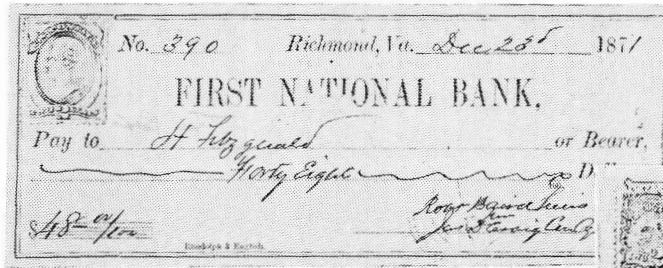 No. 390 Richmond, Va. Dec 23d 1871
FIRST NATIONAL BANK.
Pay to H Fitzgerald or Bearer,
Forty Eight
$48 00/100
Randolph & English